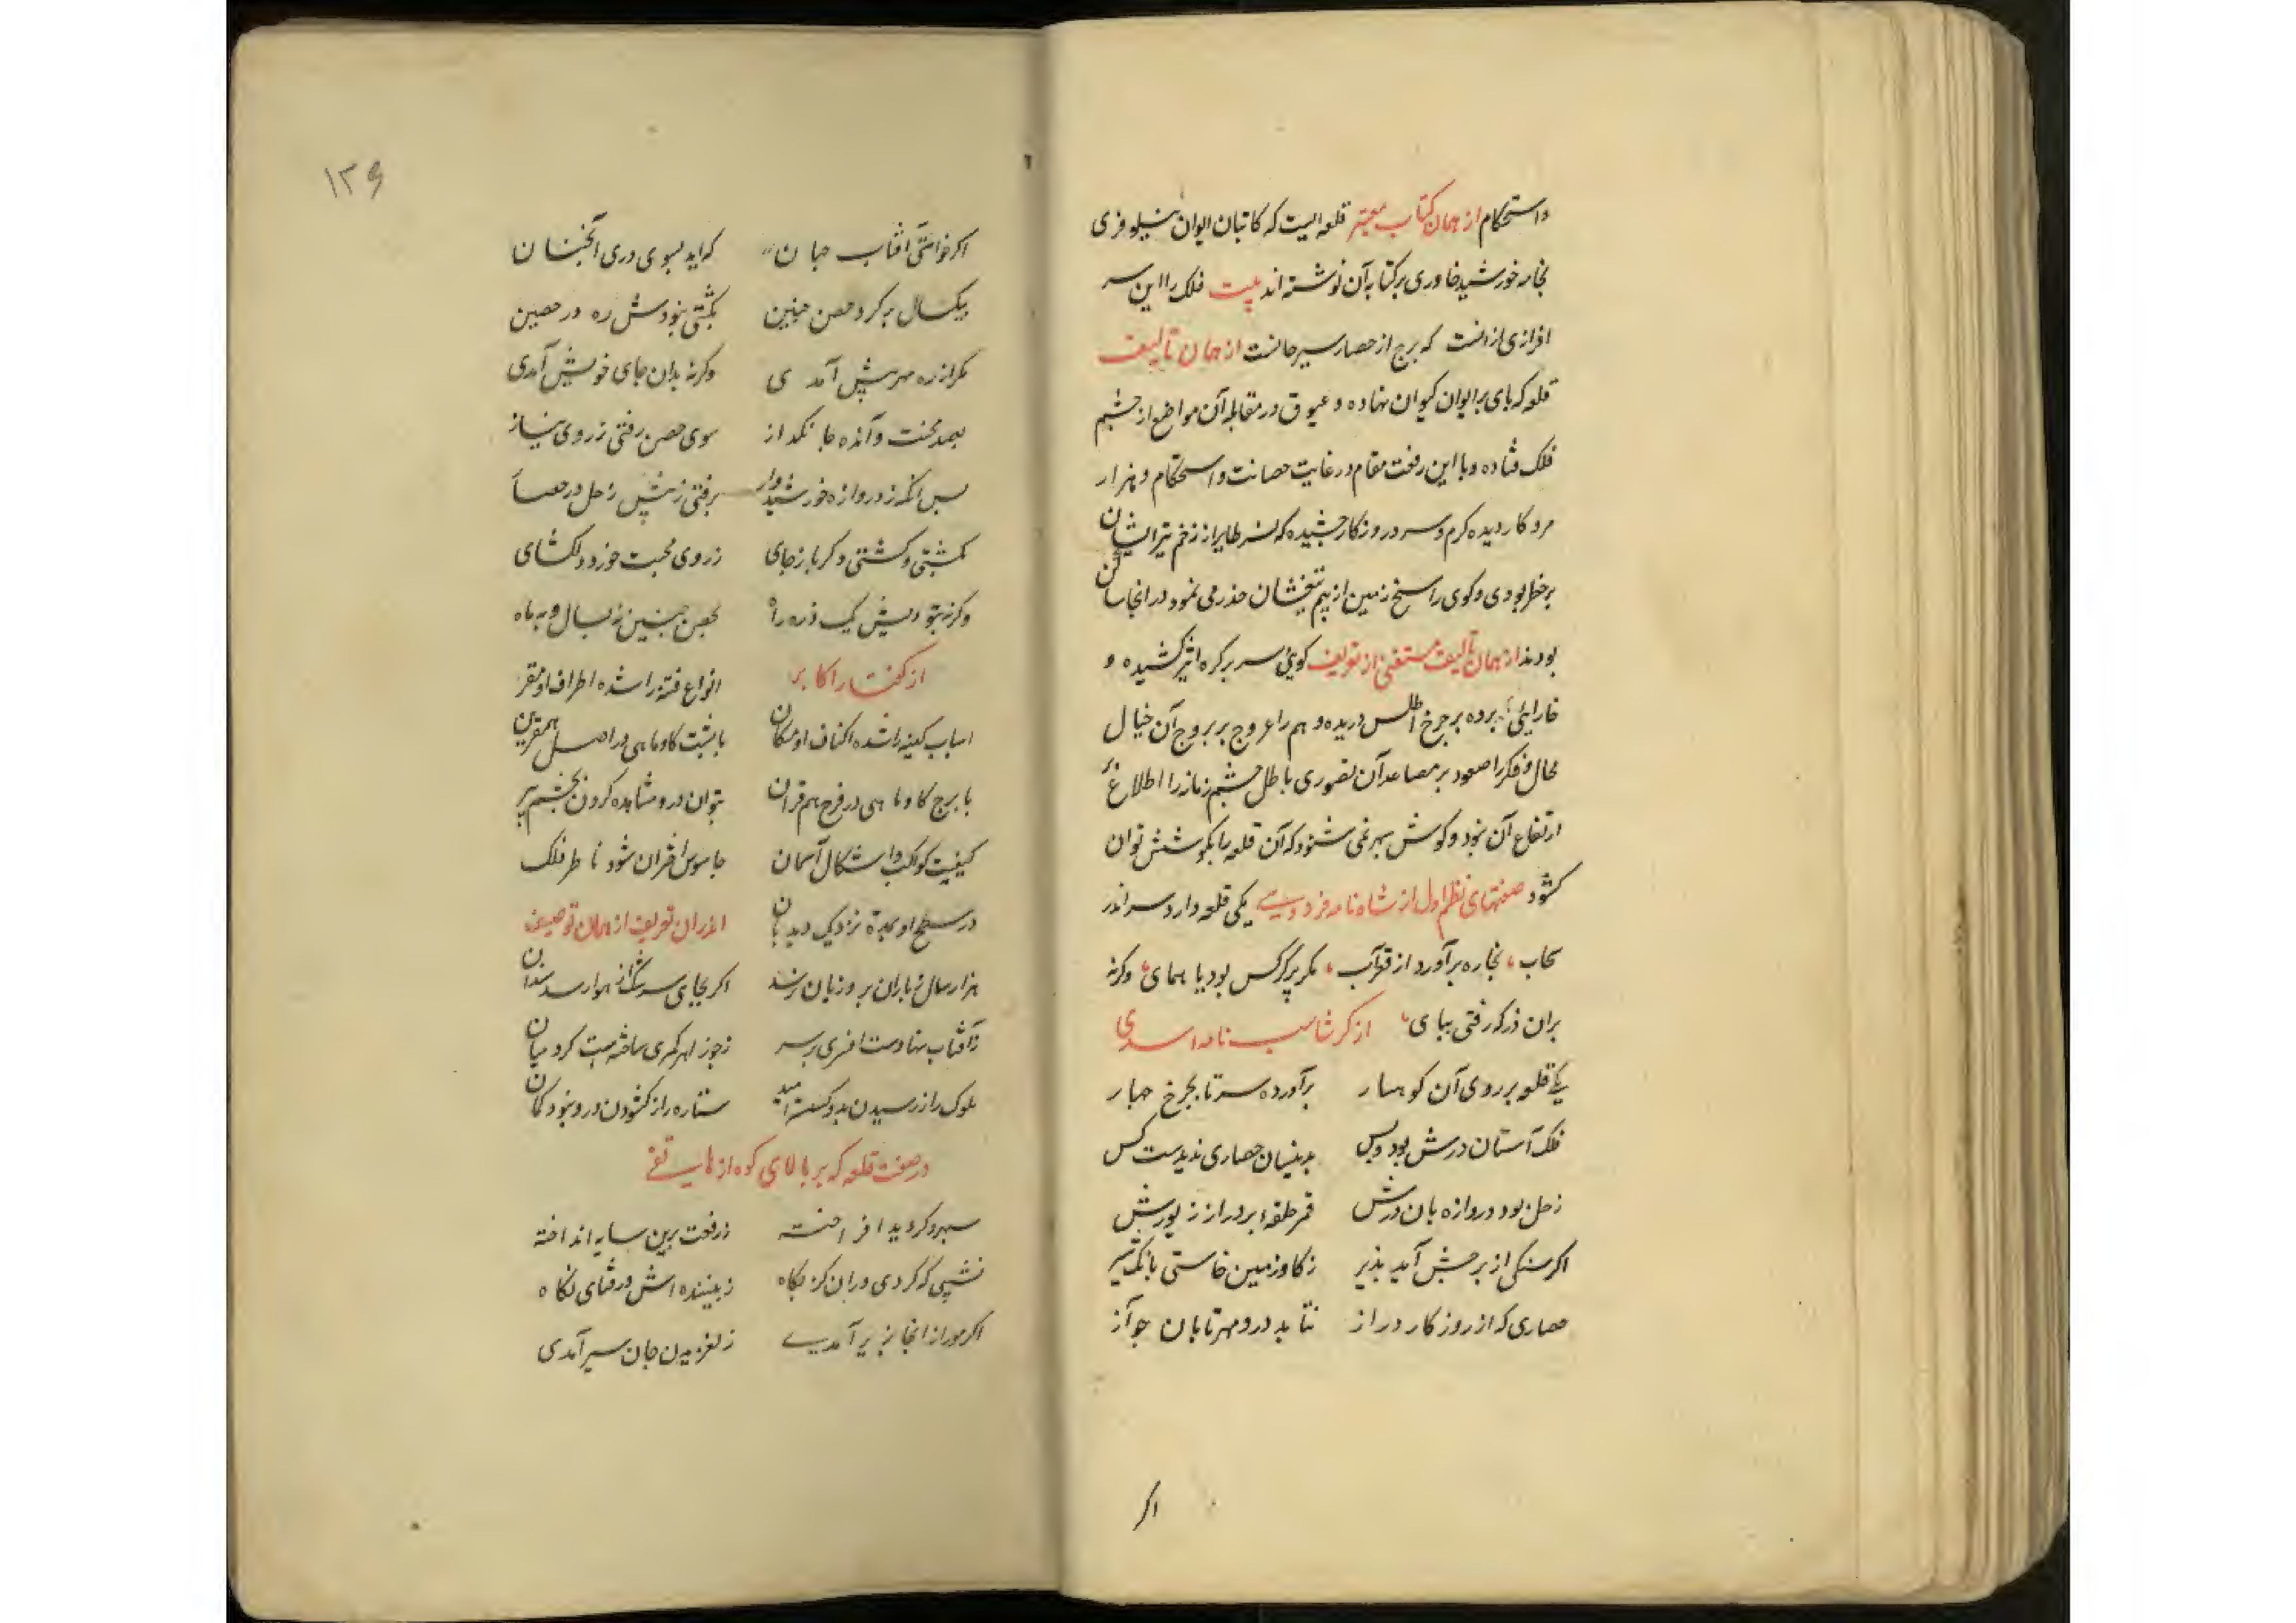 واستحکام از همان کتاب معتبر قلعه ایست که کاتبان ایوان نیلوفری
بخامه خورشید خاوری بر کتابه آن نوشته اند بیت فلک را این سر
افرازی از انست که برج از حصار سیرجانست از همان تالیف
قلعه که پای بر ایوان کیوان نهاده و عیوق در مقابله آن مواضع از چشم
فلک فتاده و با این رفعت مقام در غایت حصانت و استحکام و هزار
مرد کار دیده کرم و سرد روزکار چشیده که نسر طایر از زخم تیر ایشان
بر خطر بودی و کوی راسخ زمین از بیم تیغشان حذر می نمود در انجا ساکن
بودند از همان تالیف مستغنی از تعریف کوئی سر بر کره اثیر کشیده و
برده بر چرخ اطلس دریده وهم را عروج بر بروج آن خیال
محال و فکر را صعود بر مصاعد آن تصوری باطل چشم زمانه را اطلاع
ارتفاع آن نبود و کوش سپهر نمی شنود که آن قلعه را بکوشش توان
کشود صفتهای نظم اول از شاه نامه فردوسی یکی قلعه دارد سر اندر
سحاب ، نجاره برآورد از قعر آب ، مکر پر کرکس بود یا همای ، وکرنه
بران دز که رفتی بپای ، از کرشاسب نامه اسدی
یکی قلعه بر روی آن کوهسار برآورده سر تا بچرخ چهار
فلک آستان درش بود و بس بدینسان حصاری ندیدست کس
زحل بود دروازه بان درش قمر حلقهٔ بر در از زیورش
اکر سنکی از برجش آید بزیر ز کاو زمین خاستی بانک تیر
حصاری که از روزکار دراز نتابد درو مهر تابان جو آز
اکر
۱۳۶
اکر خواستی آفتاب جهان که اید بسوی دری آنچنان
بیکسال بر کرد حصن چنین بکشتی نبودش ره در حصین
مکر از ره مهر پیش آمدی وکرنه بدان جای خویش آمدی
بصد محنت و آنده جانکداز سوی حصن رفتی ز روی نیاز
پس انکه ز دروازه خورشیدوار برفتی ز پیش زحل در حصار
بکشتی وکشتی دکر باز جای ز روی محبت خور دلکشای
وکرنه بتو دیش یک ذره راه بحصن چنین نه بسال و نه ماه
از کفتار اکابر انواع فتنه را شده اطراف او مقر
اسباب کینه را شده اکناف او مکان با پشت کاو ماهی در اصل همقرین
با برج کاو و ماهی در فرع هم قران بتوان درو مشاهده کردن بچشم سر
کیفیت کواکب و اشکال آسمان جاسوس اختران شود ناظر فلک
در سطح او بمرة نزدیک دیدبان اندران تعریف از همان توصیف
هزار سال نه باران برو زیان رسد اکر بجای سرشک از هوا رسد سندان
ز آفتاب نهادست افسری بر سر ز جوزا هر کمری ساخته بست کرد میان
ملوک را ز رسیدن بدو کسست امید ستاره را ز کشودن درو نبود کمان
در صفت قلعه که بر بالای کوه از هاتفی
سپهر و کردید افراخته ز رفعت برین سایه انداخته
نشیبی که کردی دران کز نکاه ز بیننده اش در قفای نکاه
اکر مور از انجا بزیر آمدی ز لغزیدن جان سیر آمدی